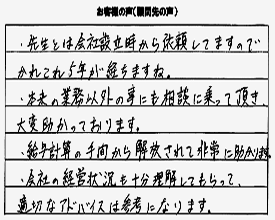 お客様の声(顧問先の声)
・先生とは会社設立時から依頼してますので
かれこれ5年が経ちますね。
・本来の業務以外の事にも相談に乗って頂き、
大変助かっております。
・給与計算の手間から解放されて非常に助かります。
・会社の経営状況も十分理解してもらって、
適切なアドバイスは参考になります。